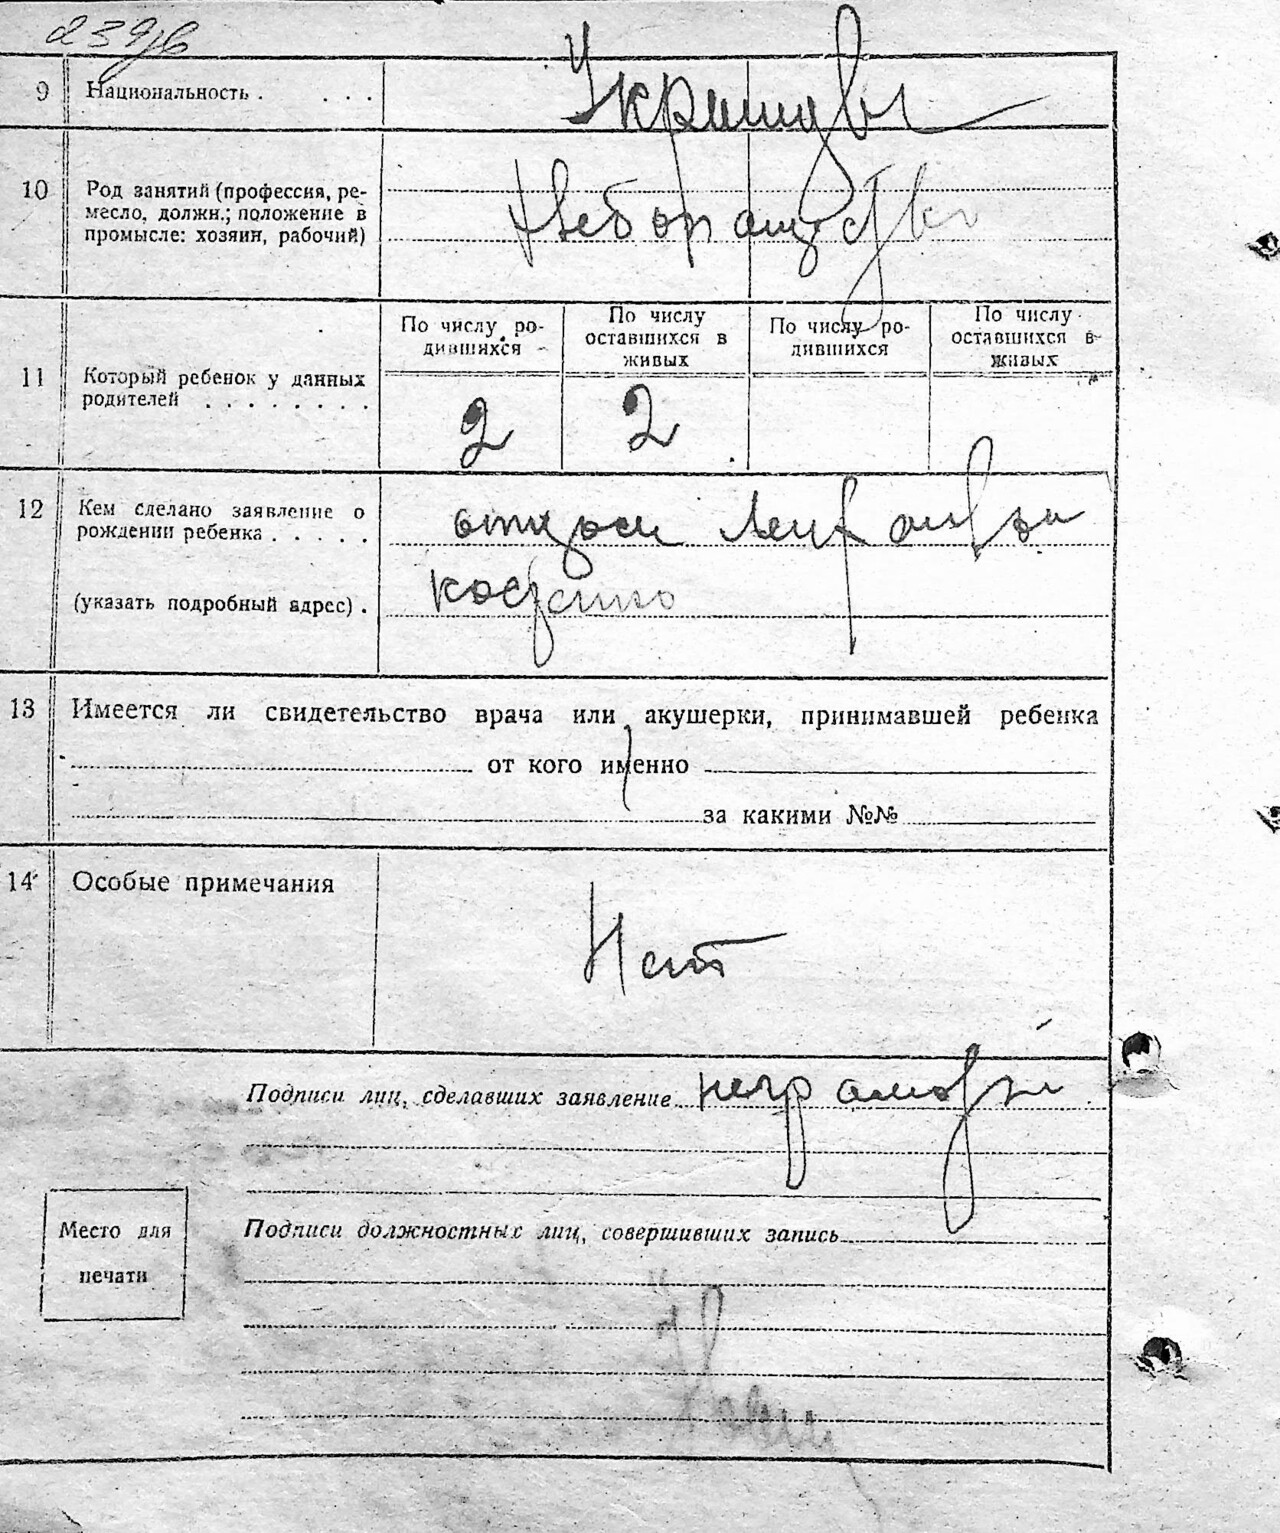 239
9 Национальность . . . . Украинцы
10 Род занятий (профессия, ре-
месло, должн.; положение в
промысле: хозяин, рабочий)
Хлеборобство
11 Который ребенок у данных
родителей . . . . . . . .
По числу ро-
дившихся
По числу
оставшихся в
живых
По числу ро-
дившихся
По числу
оставшихся в
живых
2 2
12 Кем сделано заявление о
рождении ребенка . . . . .
отцом
(указать подробный адрес) .
13 Имеется ли свидетельство врача или акушерки, принимавшей ребенка
от кого именно
за какими №№
14 Особые примечания
Нет
Подписи лиц, сделавших заявление неграмотн
Место для
печати
Подписи должностных лиц, совершивших запись